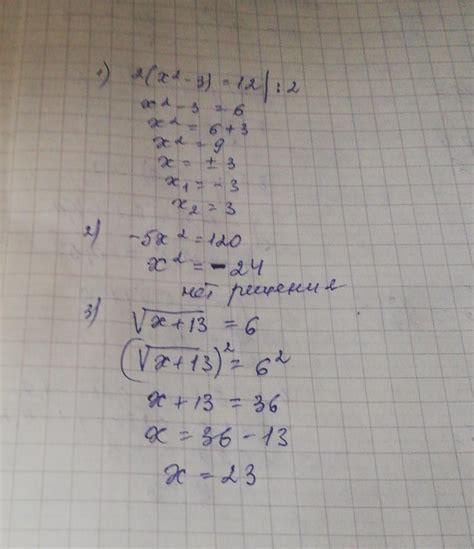 1) 2(x² - 3) = 12 | : 2
x² - 3 = 6
x² = 6 + 3
x² = 9
x = ± 3
x₁ = - 3
x₂ = 3
2) -5x² = 120
x² = - 24
нет решения
3) √(x+13) = 6
(√(x+13))² = 6²
x + 13 = 36
x = 36 - 13
x = 23